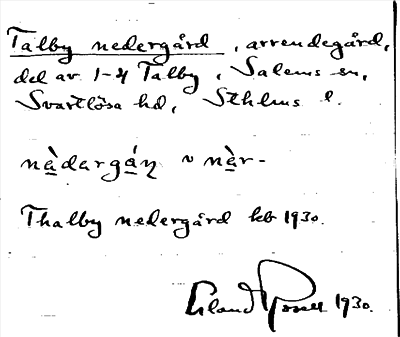 Talby nedergård, arrendegård,
del av 1-4 Talby, Salems sn,
Svartlösa hd, Sthlms l.
nàdargán̩ ~ nàr-
Thalby nedergård kb 1930.
Erland 1930.